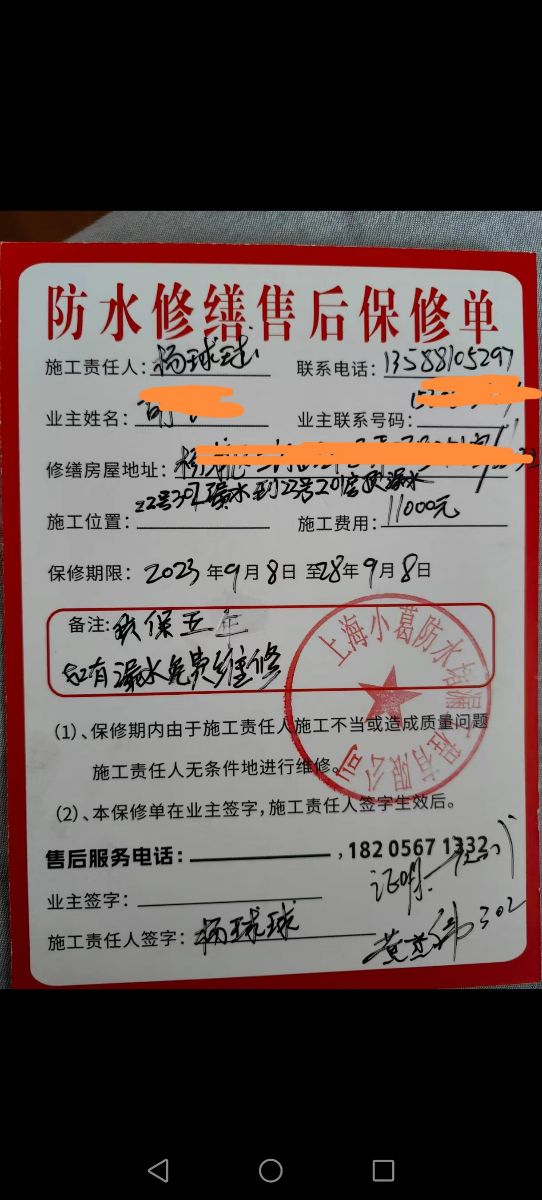 防水修缮售后保修单
施工责任人：杨球球 联系电话：13588105297
业主姓名： 业主联系号码：
修缮房屋地址：杨
22号302漏水到22号201房顶漏水
施工位置： 施工费用：11000元
保修期限：2023年9月8日至28年9月8日
备注：质保五年
如有漏水免费维修
上海小葛防水堵漏工程有限公司
(1)、保修期内由于施工责任人施工不当或造成质量问题
施工责任人无条件地进行维修。
(2)、本保修单在业主签字，施工责任人签字生效后。
售后服务电话：，182 0567 1332
业主签字： 证明
施工责任人签字：杨球球 302